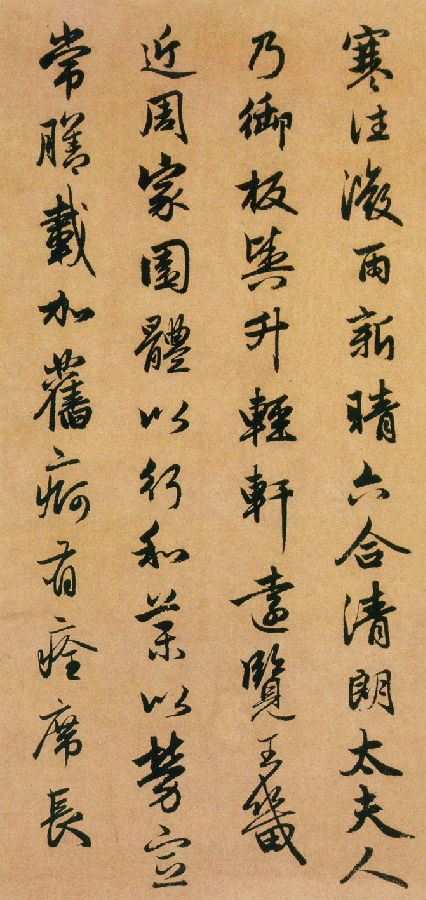 寒往溦雨新晴六合清朗太夫人
乃御板輿升輕軒遠覽王畿
近周家園體以行和藥以勞宣
常膳載加舊痾有痊席長